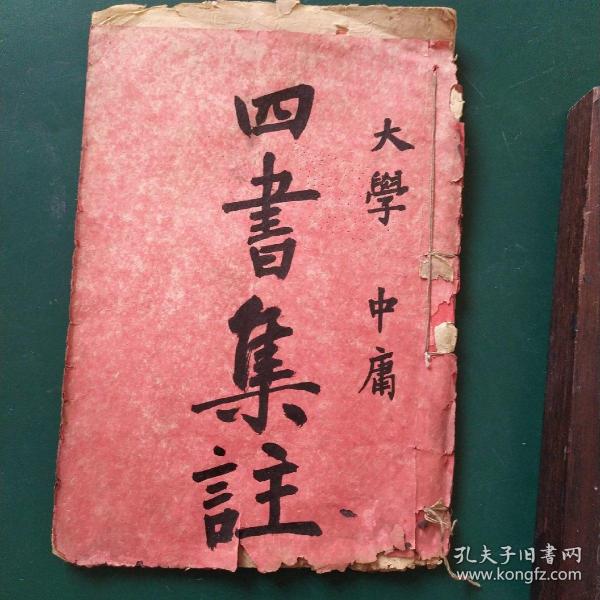 大學 中庸
四書集註
孔夫子旧书网
www.kongfz.com